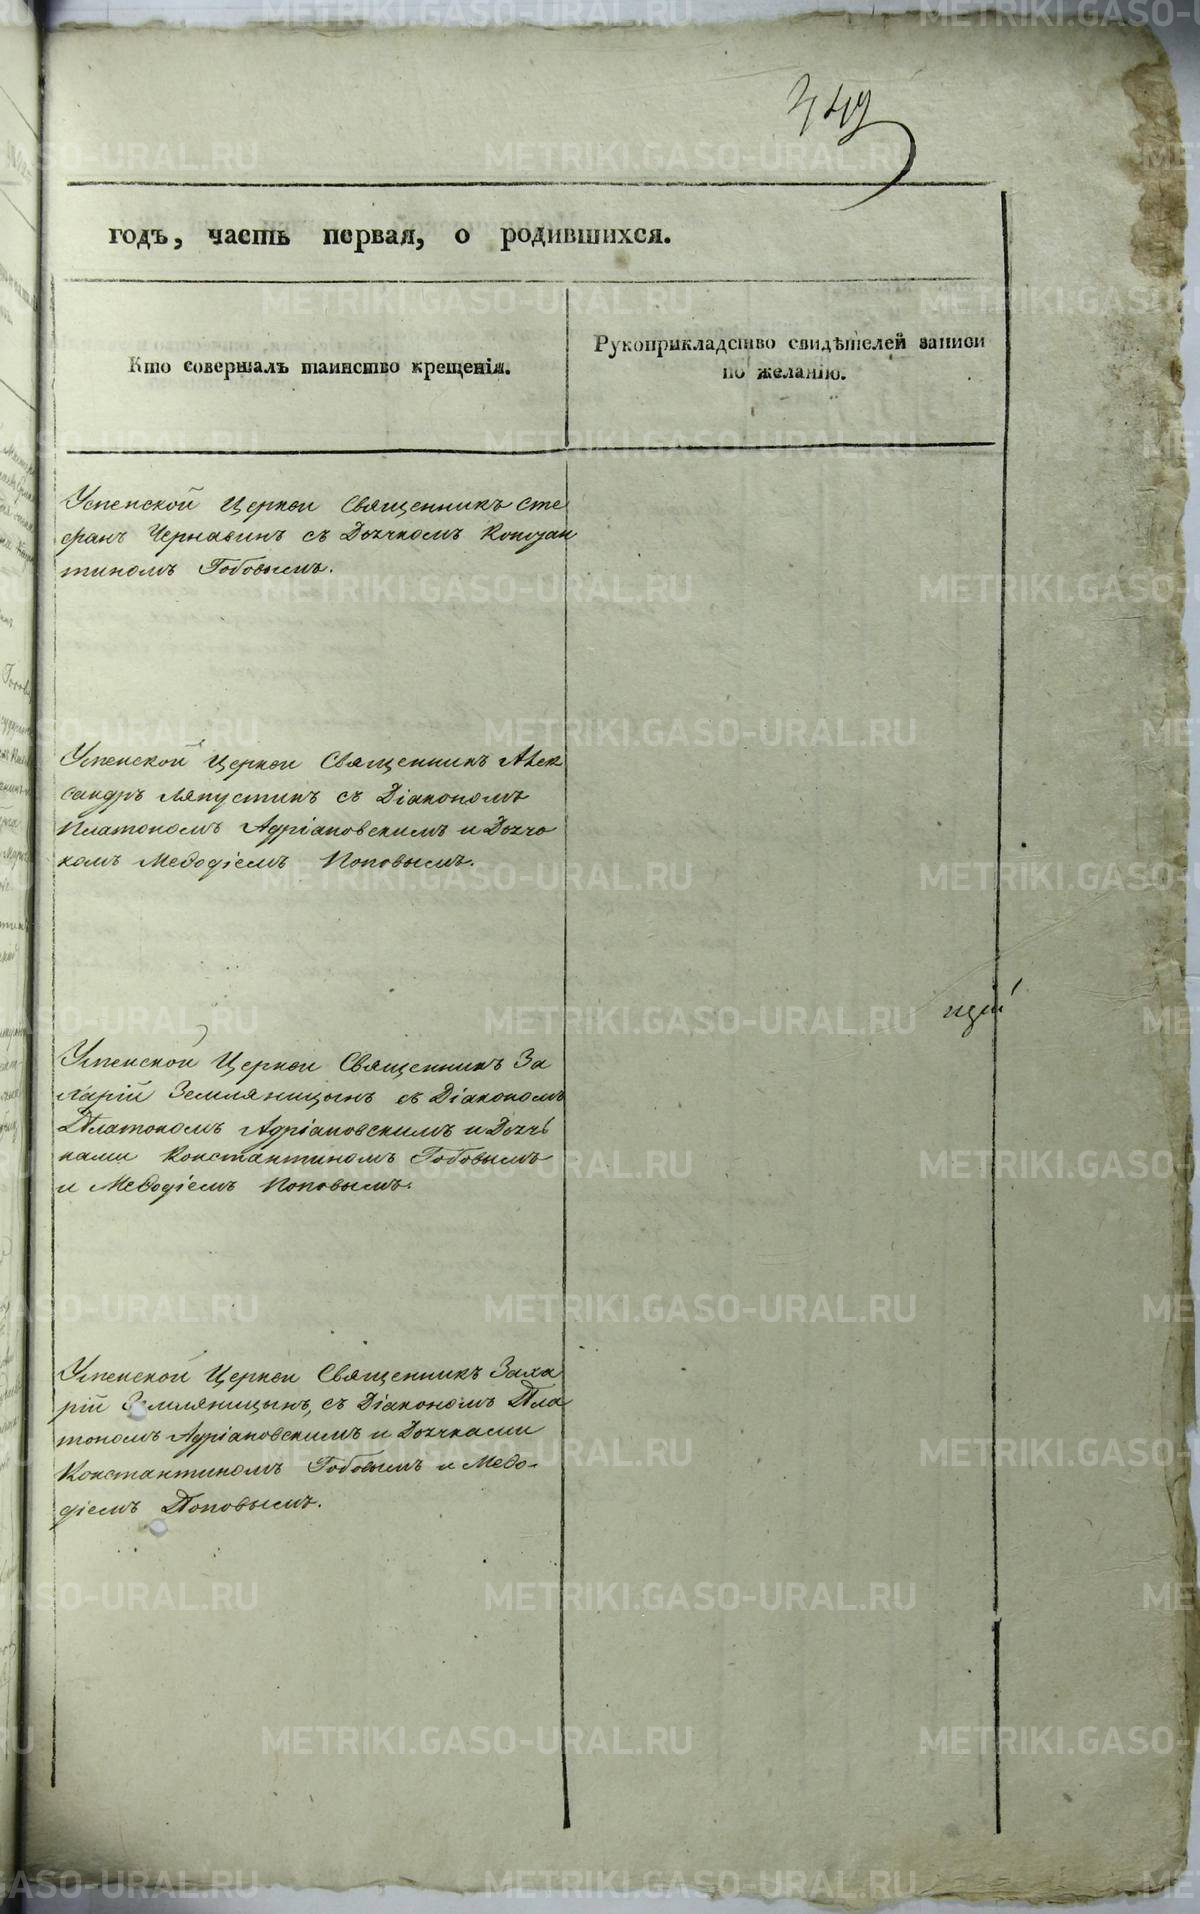 349
годъ, часть первая, о родившихся.
Кто совершалъ таинство крещенія.
Рукоприкладство свидѣтелей записи
по желанію.
Успенской Церкви Священникъ Сте
фанъ Чернавинъ съ Дьячкомъ Констан
тиномъ Гобовымъ.
Успенской Церкви Священникъ Алек
сандръ Ляпустинъ съ Діакономъ
Платономъ Адріановскимъ и Дьячо
комъ Меѳодіемъ Поповымъ.
Успенской Церкви Священникъ За
харій Земляницынъ съ Діакономъ
Платономъ Адріановскимъ и Дьяч
ками Константиномъ Гобовымъ
и Меѳодіемъ Поповымъ.
Успенской Церкви Священникъ Заха
рій Земляницынъ, съ Діакономъ Пла
тономъ Адріановскимъ и Дьячками
Константиномъ Гобовымъ и Меѳо-
діемъ Поповымъ.
METRIKI.GASO-URAL.RU